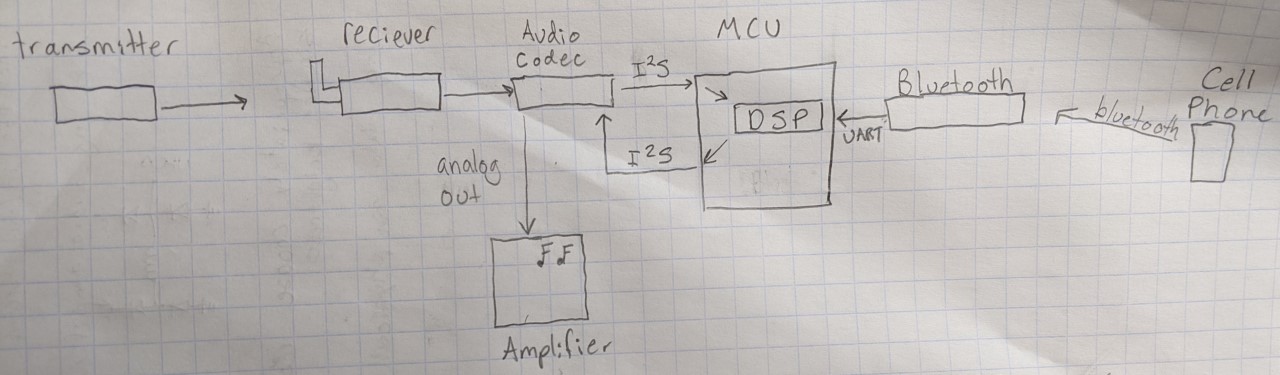 transmitter
reciever
Audio
Codec
I²S
MCU
DSP
I²S
UART
Bluetooth
bluetooth
Cell
Phone
analog
out
Amplifier